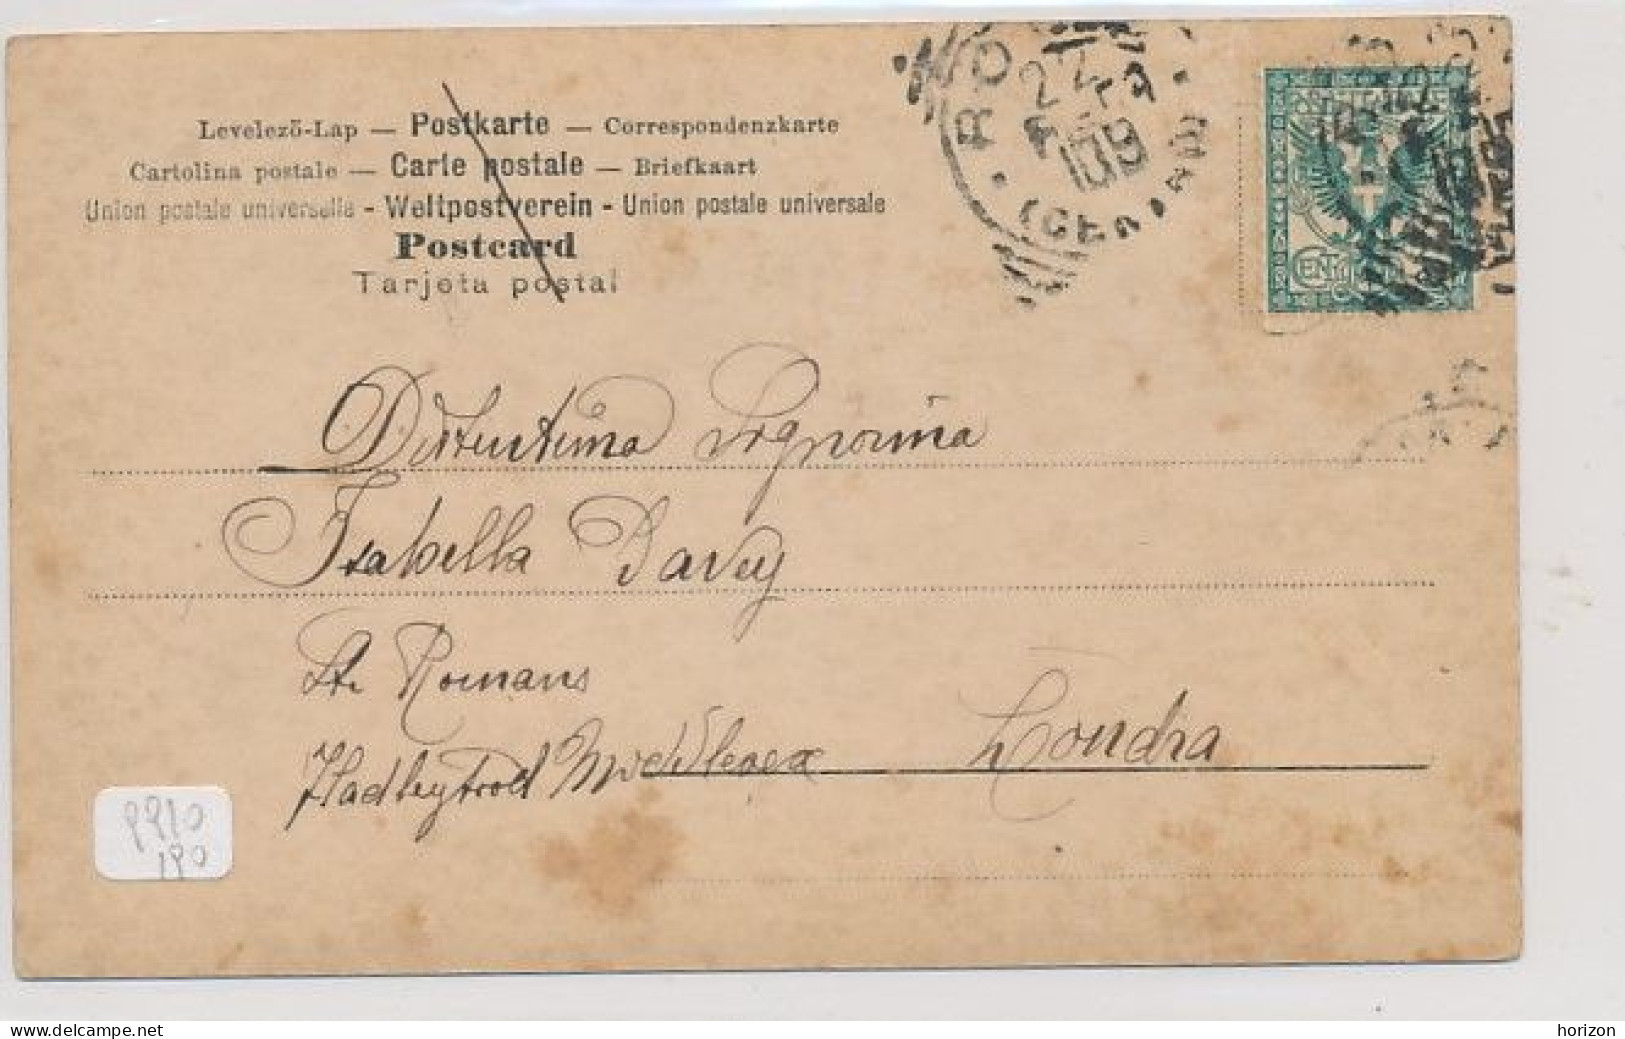 Levelező-Lap — Postkarte — Correspondenzkarte
Cartolina postale — Carte postale — Briefkaart
Union postale universelle - Weltpostverein - Union postale universale
Postcard
Tarjeta postal
Distintissima Signorina
Isabella Davey
St. Romans
Londra
Hadleytrod Middlesex
9910
190
delcampe.net
horizon